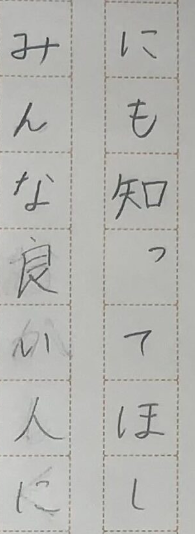 にも知ってほし
みんな良い人に